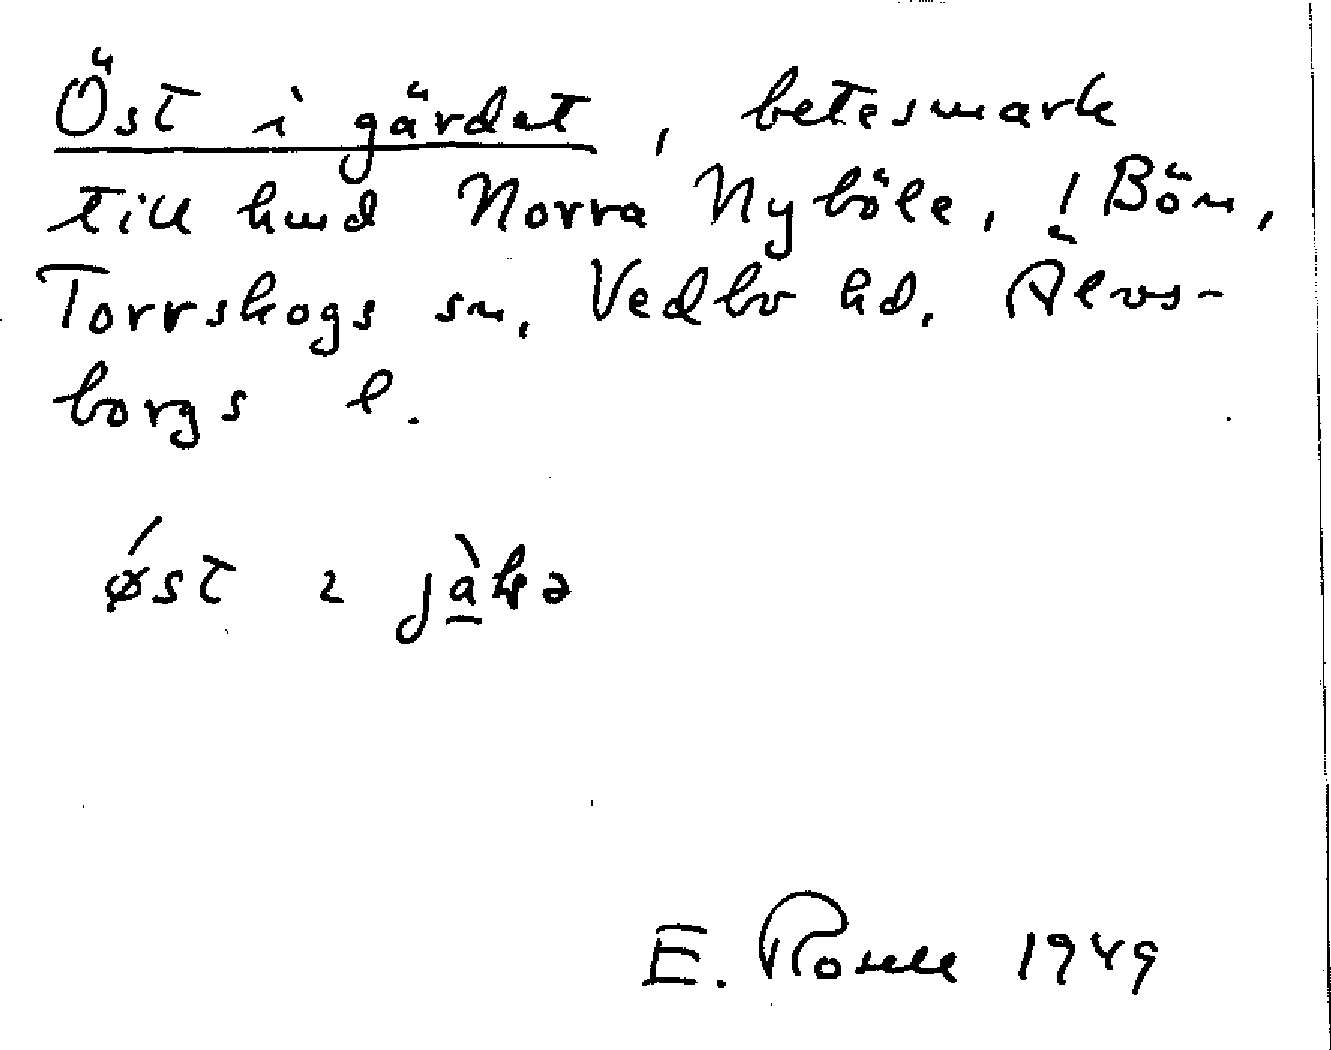 Öst i gärdet, betesmark
till hmd Norra Nyböle, 1 Bön,
Torrskogs sn, Vedbo hd, Älvs-
borgs l.
øst ɩ
E. 1949